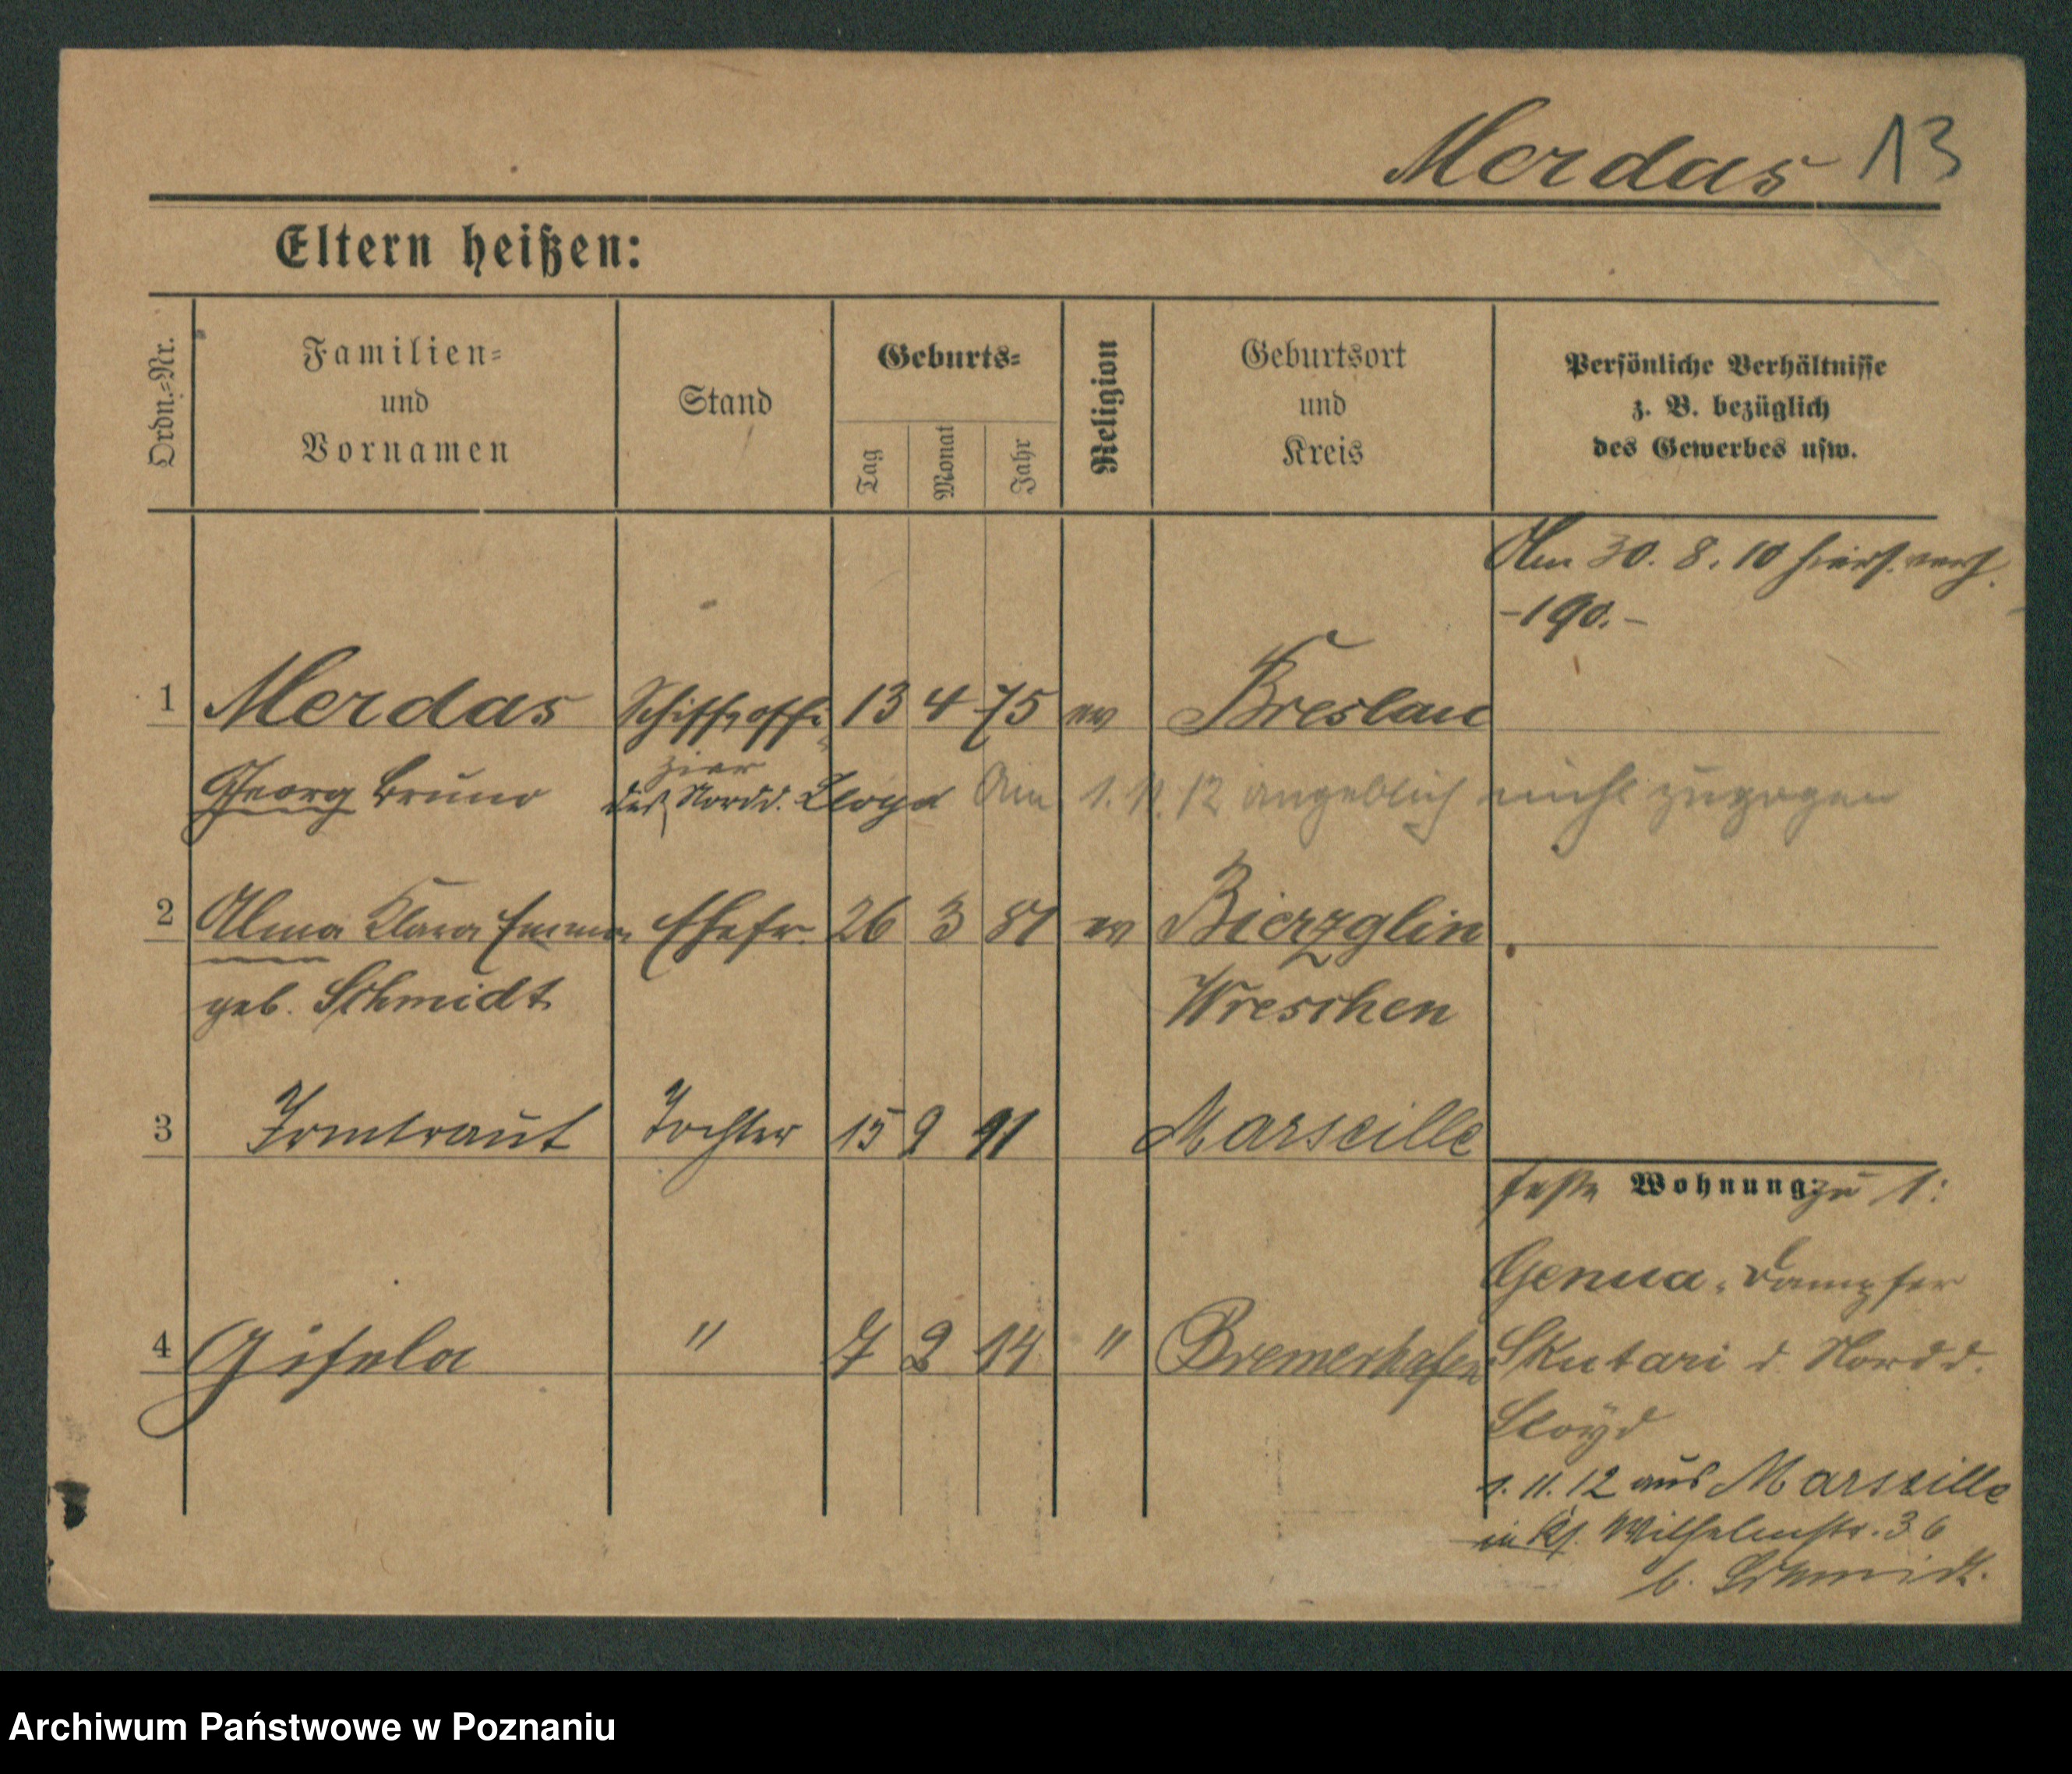 Merdas 13
Eltern heißen:
Ordn.=Nr.
Familien=
und
Vornamen
Stand
Geburts=
Tag
Monat
Jahr
Religion
Geburtsort
und
Kreis
Persönliche Verhältnisse
z. B. bezüglich
des Gewerbes usw.
Am 30. 8. 10 hiers. verh.
-190.-
1 Merdas Schiffsoffi= 13 4 75 ev Breslau
zier
Georg Bruno des Nordd. Lloyd Am 1. 11. 12 angeblich nicht zugezogen
2 Alma Klara Emma Ehefr. 26 3 81 ev Bierzglin
geb. Schmidt Wreschen
3 Irmtraut Tochter 15 9 11 Marseille
feste Wohnung zu 1:
Genua, Dampfer
4 Gisela " 7 2 14 " Bremerhafen
Skutari d. Nordd.
Lloyd
1. 11. 12 aus Marseille
in Wilhelmstr. 36
b. Schmidt.
Archiwum Państwowe w Poznaniu